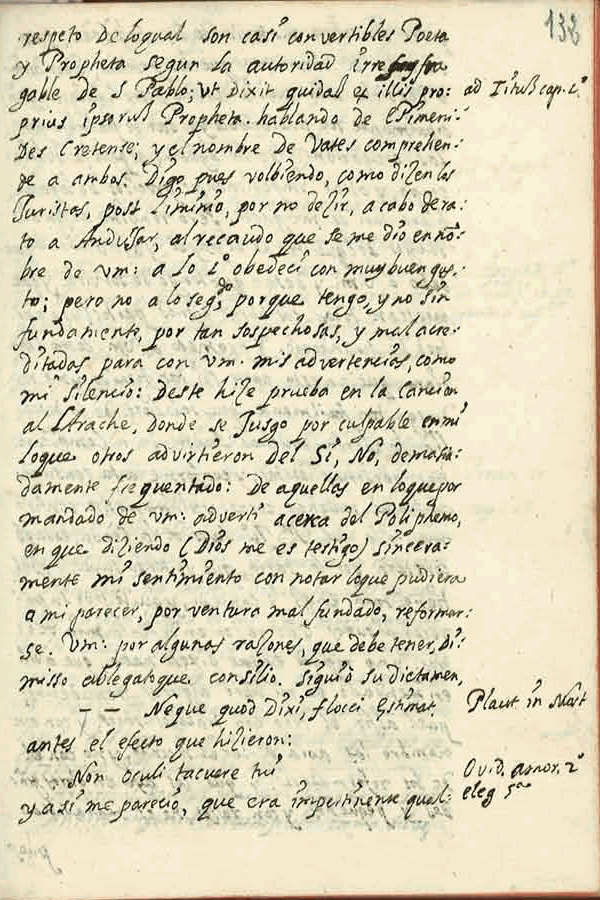 132
respeto de loqual son casi convertibles Poeta
y Propheta segun la autoridad irre
gable de S Pablo; vt dixit quidã ex illis pro: ad Titũ cap. 1º
prius ipsorũ Propheta. hablando de Epimeni:
des Cretense; y el nombre de Vates comprehen:
de a ambos. Digo pues volbiendo, como dizen los
Juristas, post liminio, por no dezir, a cabo de ra:
to a Andujar, al recaudo que se me dio en nõ:
bre de vm: a lo 1º obedeci con muy buen gus:
to; pero no a lo segdo, porque tengo, y no sin
fundamento, por tan sospechosas, y mal acre:
ditadas para con vm. mis advertencias, como
mi silencio: deste hize prueba en la Cancion
al LArache, donde se Juzgo por culpable en mi
loque otros advirtieron del Si, No, demasia:
damente frequentado: De aquellas en loque por
mandado de vm: adverti acerca del Poliphemo,
en que diziendo (Dios me es testigo) sincera:
mente mi sentimiento con notar loque pudiera
a mi parecer, por ventura mal fundado, reformar:
se. Vm: por algunas razones, que debe tener, Di:
misso ablegatoque consilio. siguiò su dictamen,
— — Neque quod Dixi, flocci Estimat. Plaut in Most
antes el efecto que hizieron:
Non oculi tacuere tui Ovid. amor. 2º
y asi me pareciò, que era impertinente qual: eleg 5ª